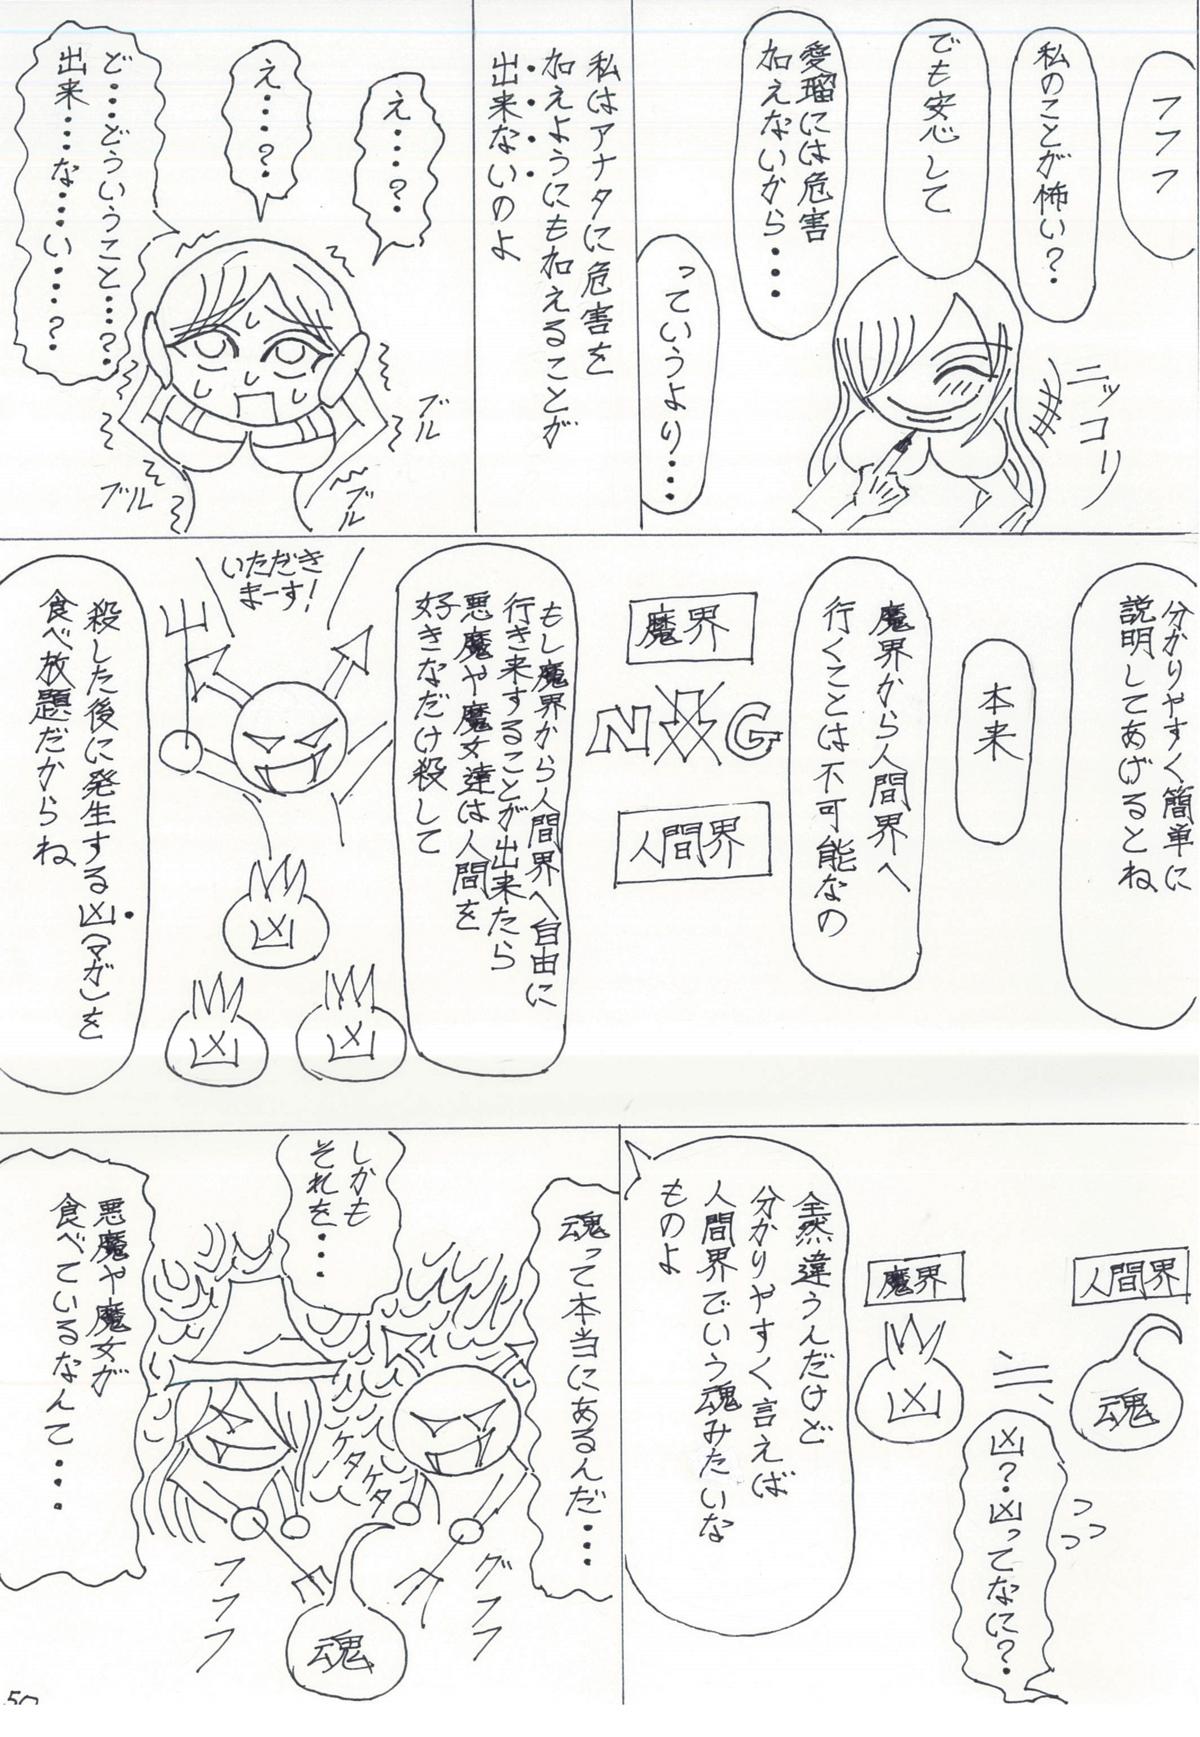 フフフ
私のことが怖い?
でも安心して
愛瑠には危害
加えないから・・・
ニッコリ
っていうより・・・
私はアナタに危害を
加えようにも加えることが
出来ないのよ
え・・・?
え・・・?
ど・・・どういうこと・・・?
出来・・・な・・・い・・・?
ブル
ブル
ブル
分かりやすく簡単に
説明してあげるとね
本来
魔界から人間界へ
行くことは不可能なの
魔界
NG
人間界
もし魔界から人間界へ自由に
行き来することが出来たら
悪魔や魔女達は人間を
好きなだけ殺して
いただき
まーす!
凶
凶
凶
殺した後に発生する凶(マガ)を
食べ放題だからね
人間界
魂
魔界
凶
凶?凶ってなに?
全然違うんだけど
分かりやすく言えば
人間界でいう魂みたいな
ものよ
魂って本当にあるんだ・・・
しかも
それを・・・
ケタケタ
グフフ
フフフ
魂
悪魔や魔女が
食べているなんて・・・